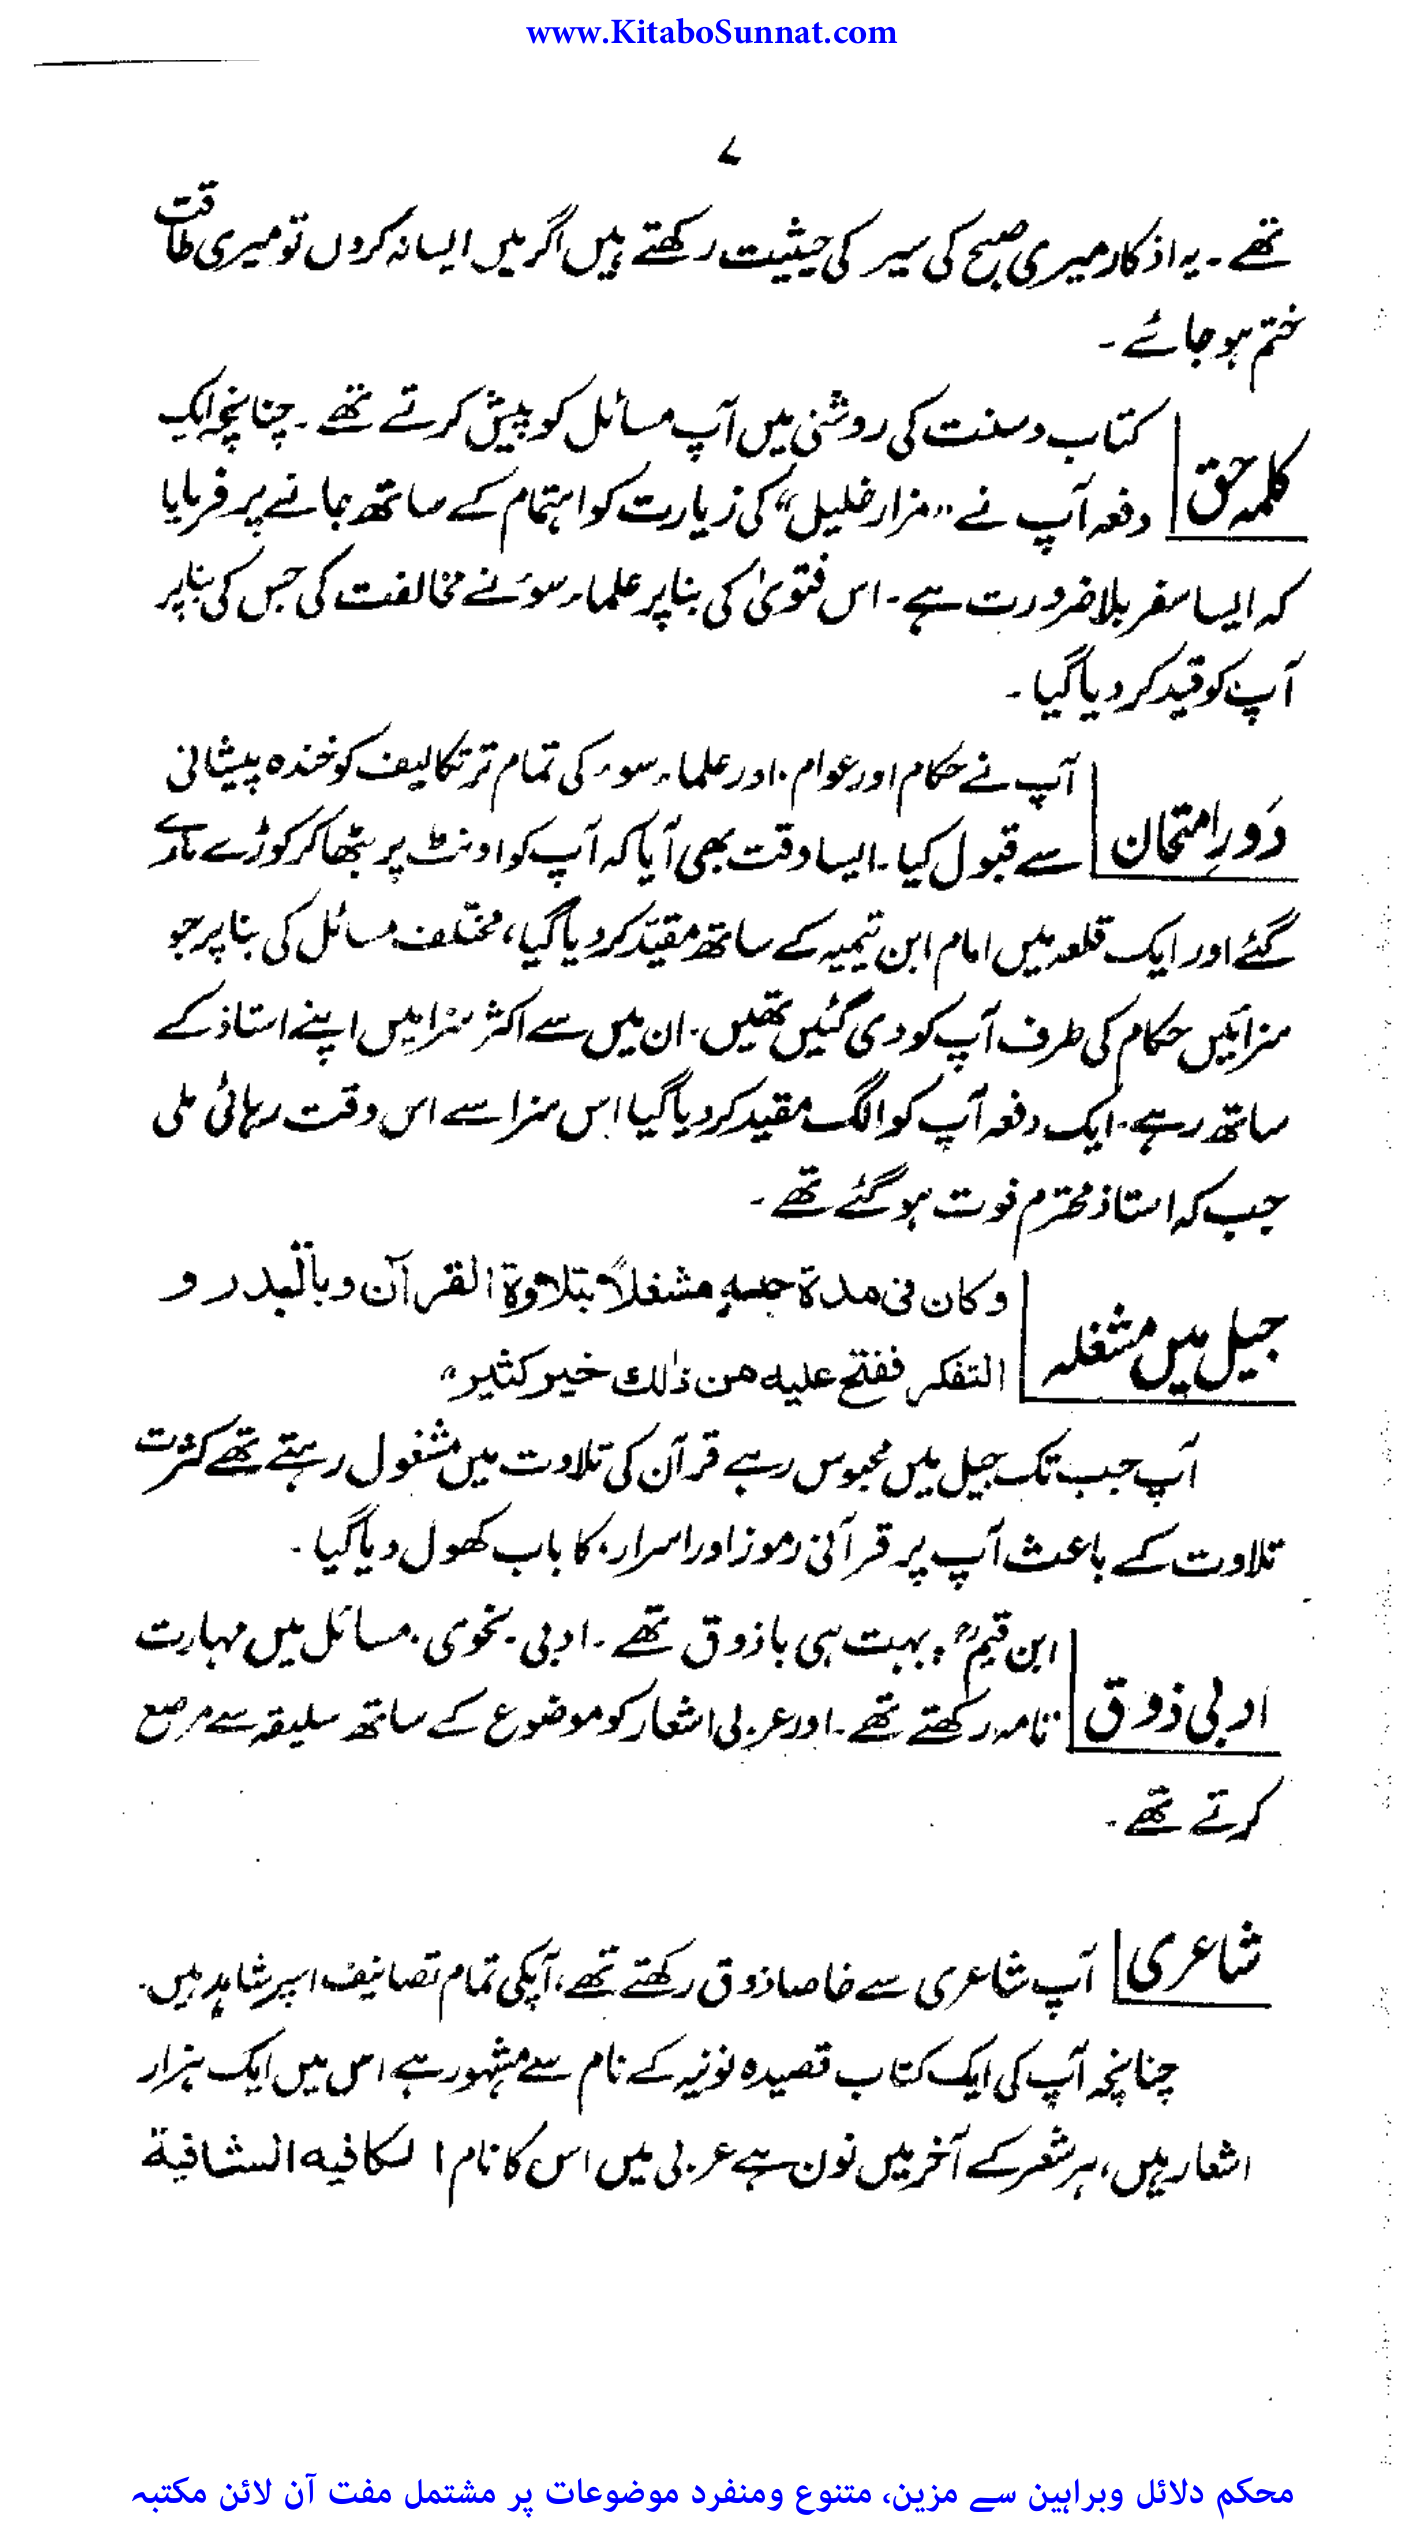 www.KitaboSunnat.com
۷
تھے ۔ یہ اذکار میری صبح کی سیر کی حیثیت رکھتے ہیں اگر میں ایسا نہ کروں تو میری طاقت
ختم ہو جائے ۔
کلمہ حق
کتاب و سنت کی روشنی میں آپ مسائل کو پیش کرتے تھے ۔ چنانچہ ایک
دفعہ آپ نے "مزار خلیل" کی زیارت کو اہتمام کے ساتھ جانے پر فرمایا
کہ ایسا سفر بلا ضرورت ہے ۔ اس فتویٰ کی بنا پر علماء سوء نے مخالفت کی جس کی بنا پر
آپ کو قید کر دیا گیا ۔
دَورِ امتحان
آپ نے حکام اور عوام ۔ اور علماء سوء کی تمام تر تکالیف کو خندہ پیشانی
سے قبول کیا ۔ ایسا وقت بھی آیا کہ آپ کو اونٹ پر بٹھا کر کوڑے مارے
گئے اور ایک قلعہ میں امام ابن تیمیہ کے ساتھ مقیّد کر دیا گیا، مختلف مسائل کی بنا پر جو
سزائیں حکام کی طرف آپ کو دی گئیں تھیں ۔ ان میں سے اکثر سزا میں اپنے استاذ کے
ساتھ رہے ۔ ایک دفعہ آپ کو الگ مقید کر دیا گیا اس سزا سے اس وقت رہائی ملی
جب کہ استاذ محترم فوت ہو گئے تھے ۔
جیل میں مشغلہ
وکان فی مدۃ حبسہٖ مشغلاً بتلاوۃ القرآن وبالتدبر و
التفکر ففتح علیہ من ذٰلک خیر کثیر"
آپ جب تک جیل میں محبوس رہے قرآن کی تلاوت میں مشغول رہتے تھے کثرت
تلاوت کے باعث آپ پر قرآنی رموز اور اسرار، کا باب کھول دیا گیا ۔
ادبی ذوق
ابن قیمؒ، بہت ہی باذوق تھے ۔ ادبی ۔ نحوی ۔ مسائل میں مہارت
تامہ رکھتے تھے ۔ اور عربی اشعار کو موضوع کے ساتھ سلیقہ سے مرصع
کرتے تھے ۔
شاعری
آپ شاعری سے خاصا ذوق رکھتے تھے، آپکی تمام تصانیف اسپر شاہد ہیں ۔
چنانچہ آپ کی ایک کتاب قصیدہ نونیہ کے نام سے مشہور ہے اس میں ایک ہزار
اشعار ہیں، ہر شعر کے آخر میں نون ہے عربی میں اس کا نام الکافیہ الشافیۃ
محکم دلائل وبراہین سے مزین، متنوع ومنفرد موضوعات پر مشتمل مفت آن لائن مکتبہ